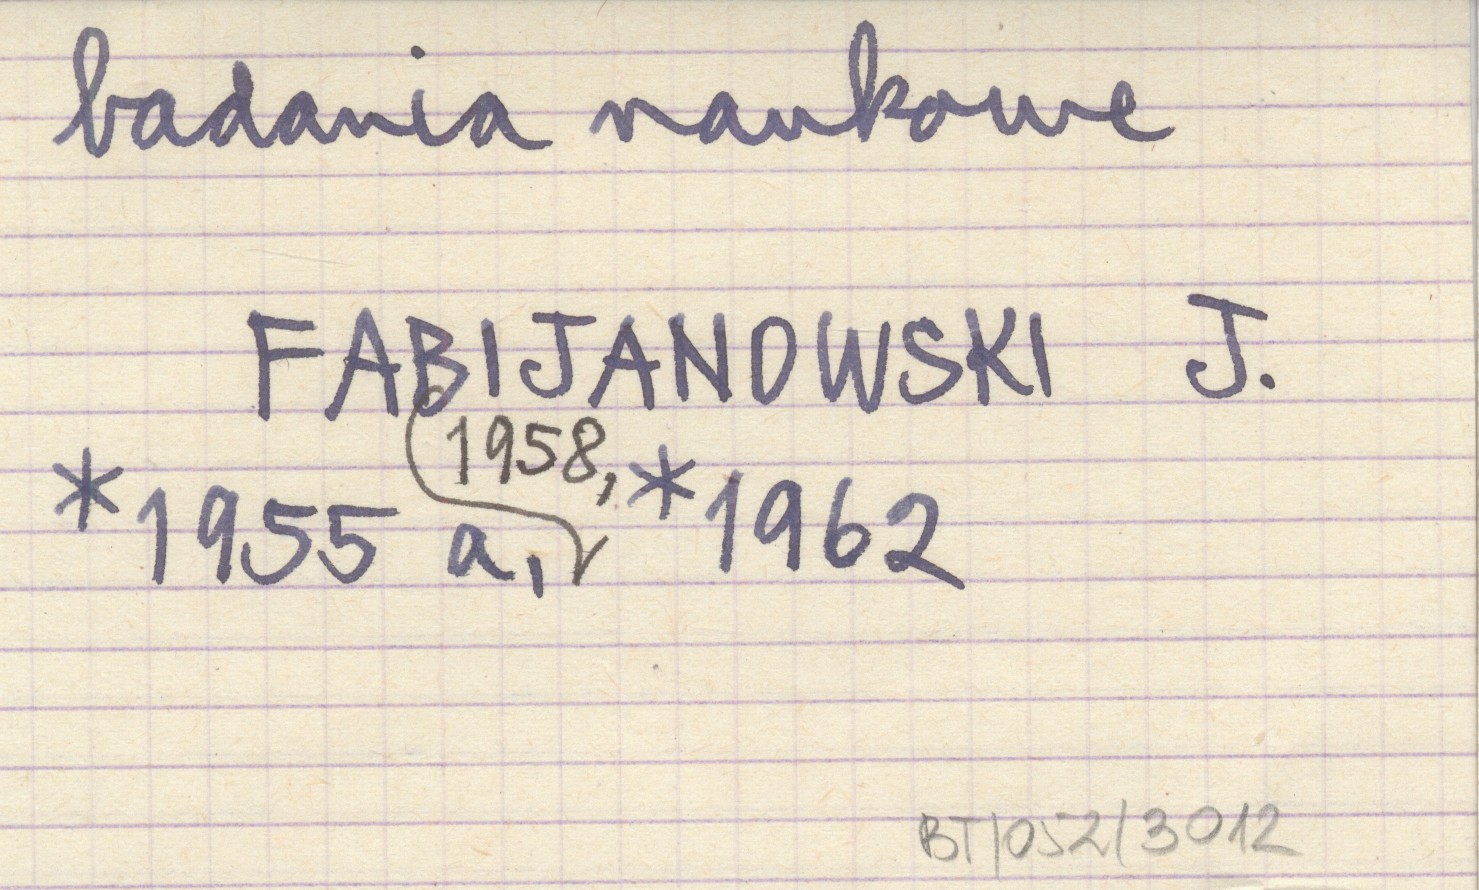 badania naukowe
FABIJANOWSKI J.
*1955 a, 1958, *1962
BT/052/3012